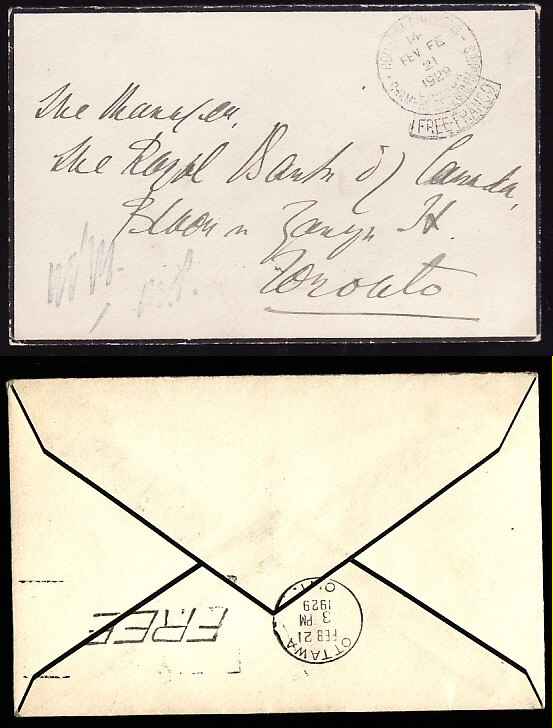 The Manager,
The Royal Bank of Canada,
Bloor & Yonge St.
Toronto
HOUSE OF COMMONS
14
FEV FE
21
1929
FREE-FRANCO
FREE
OTTAWA
FEB 21
3 PM
1929
ONT.